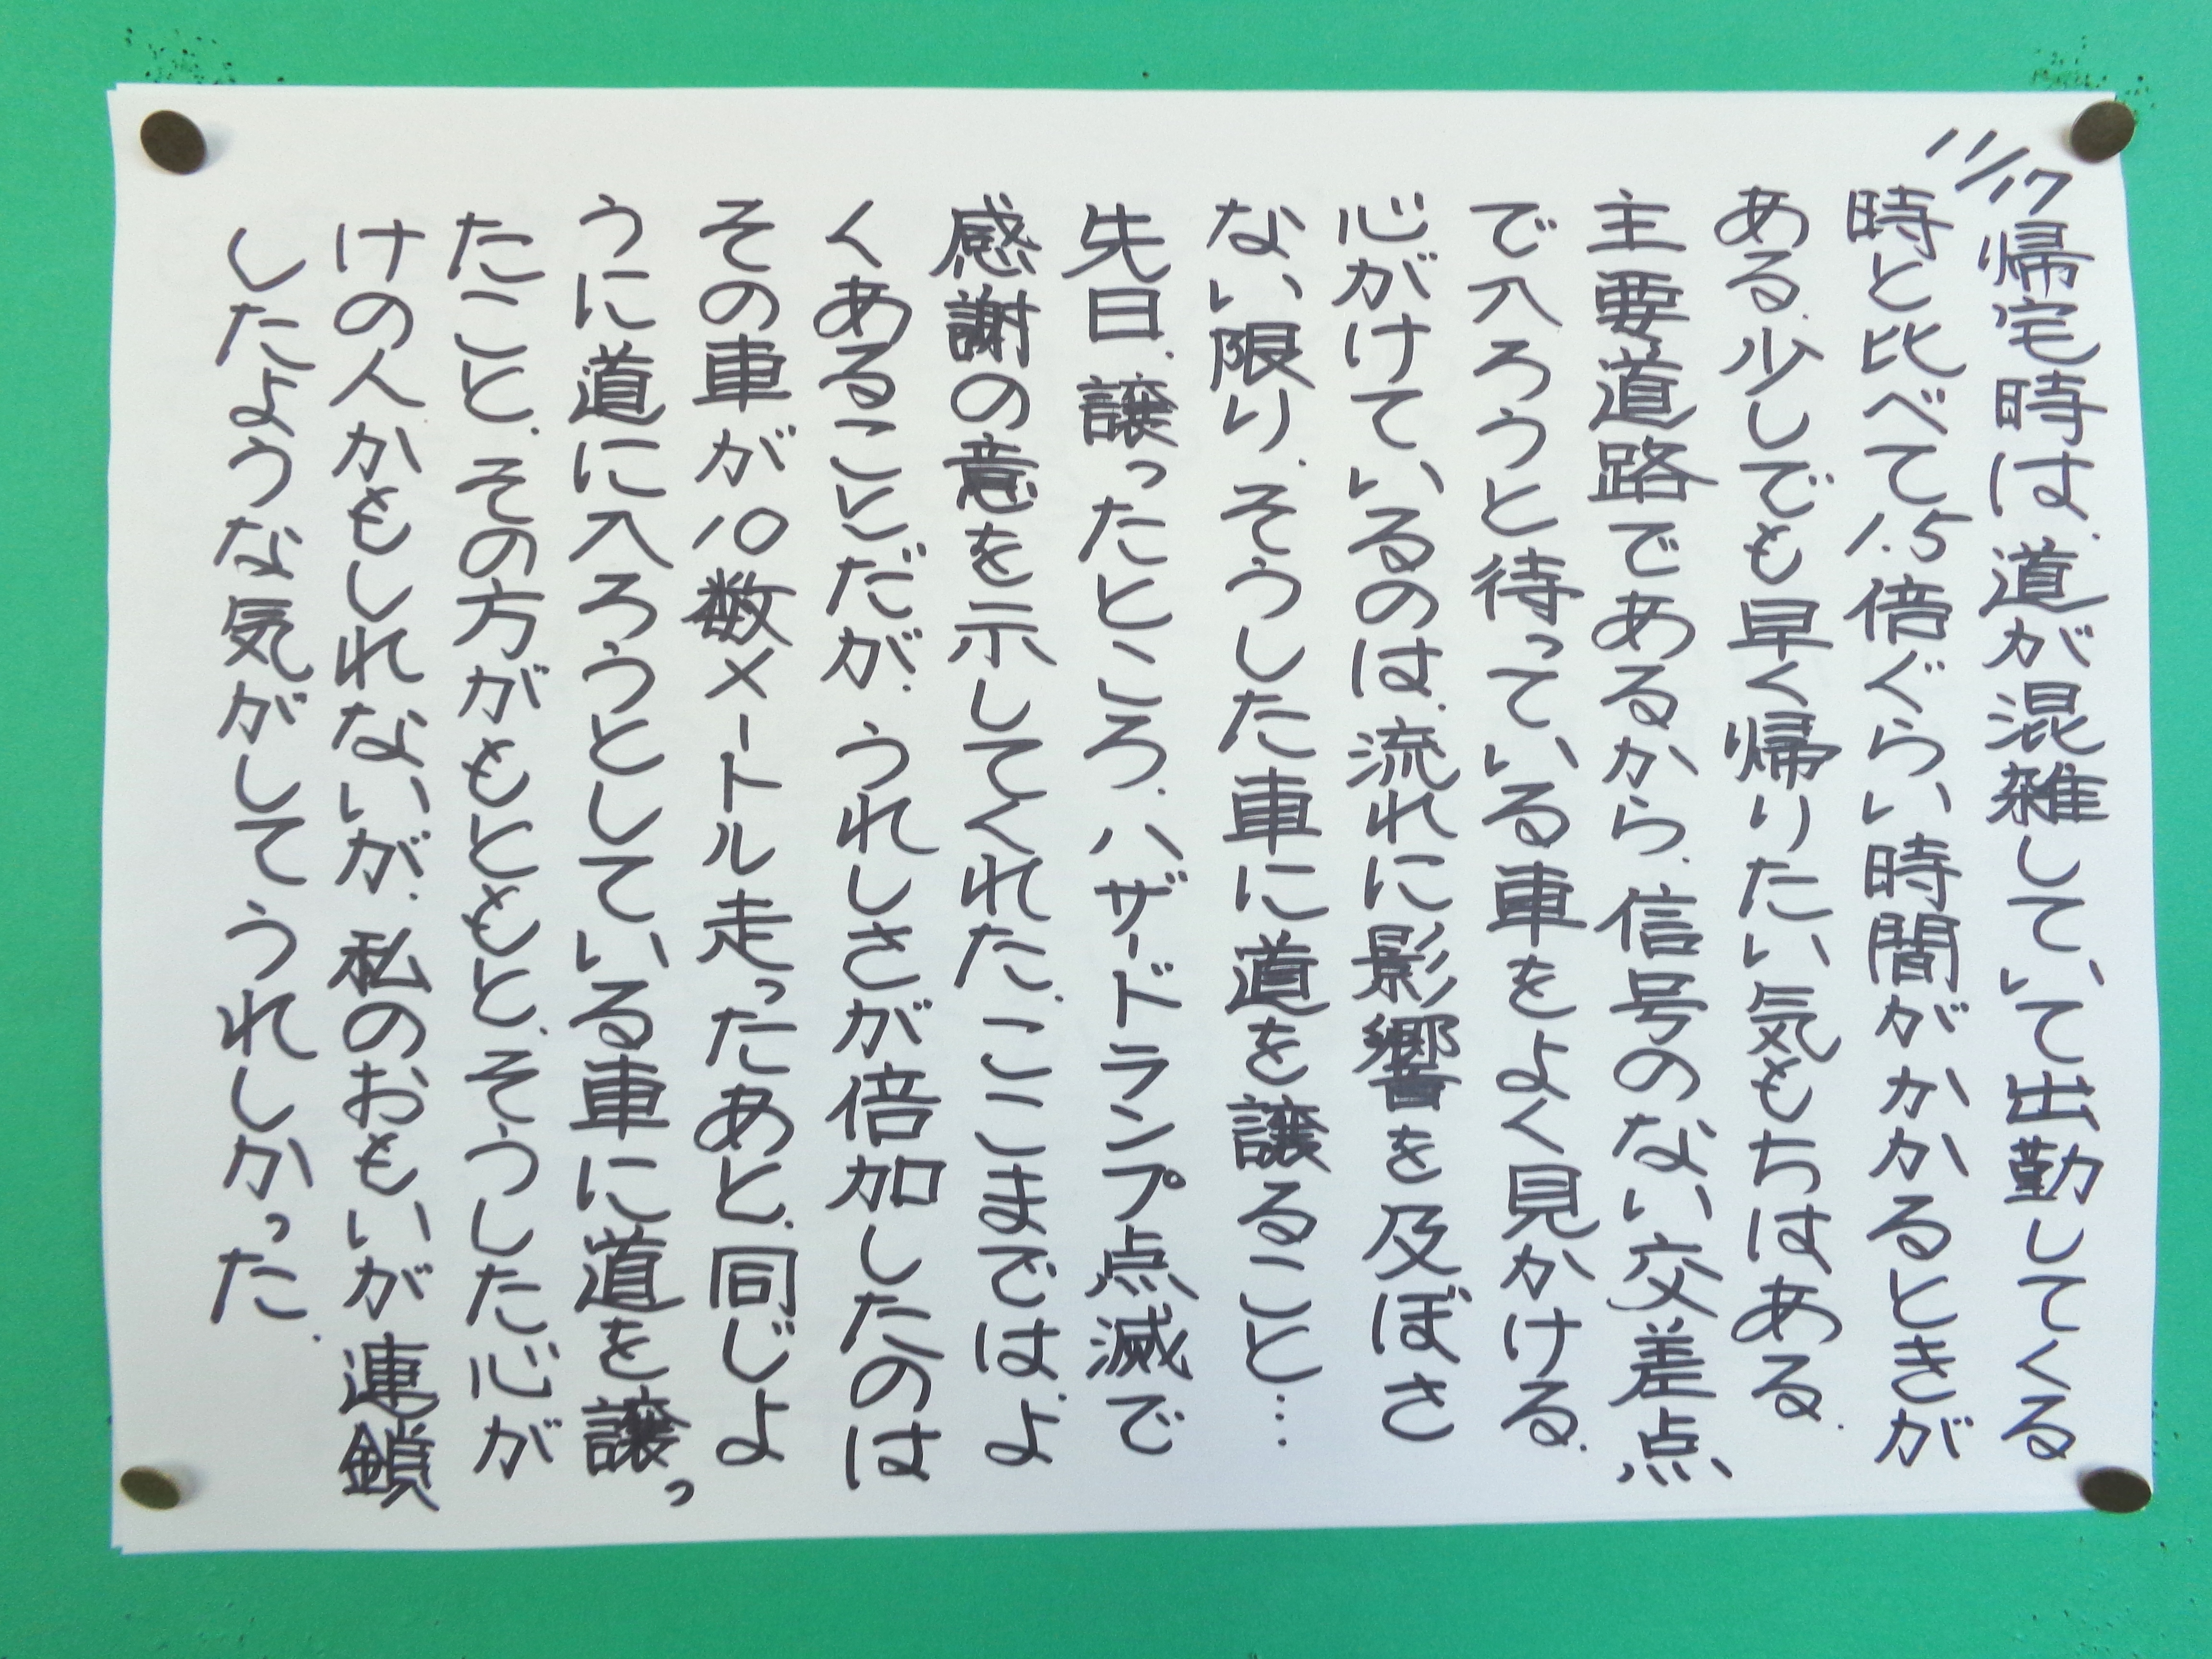 11/17
帰宅時は、道が混雑していて出勤してくる
時と比べて1.5倍ぐらい時間がかかるときが
ある。少しでも早く帰りたい気もちはある。
主要道路であるから、信号のない交差点
で入ろうと待っている車をよく見かける。
心がけているのは、流れに影響を及ぼさ
ない限り、そうした車に道を譲ること…
先日、譲ったところ、ハザードランプ点滅で
感謝の意を示してくれた。ここまでは、よ
くあることだが、うれしさが倍加したのは
その車が10数メートル走ったあと、同じよ
うに道に入ろうとしている車に道を譲っ
たこと。その方がもともと、そうした心が
けの人かもしれないが、私のおもいが連鎖
したような気がしてうれしかった。